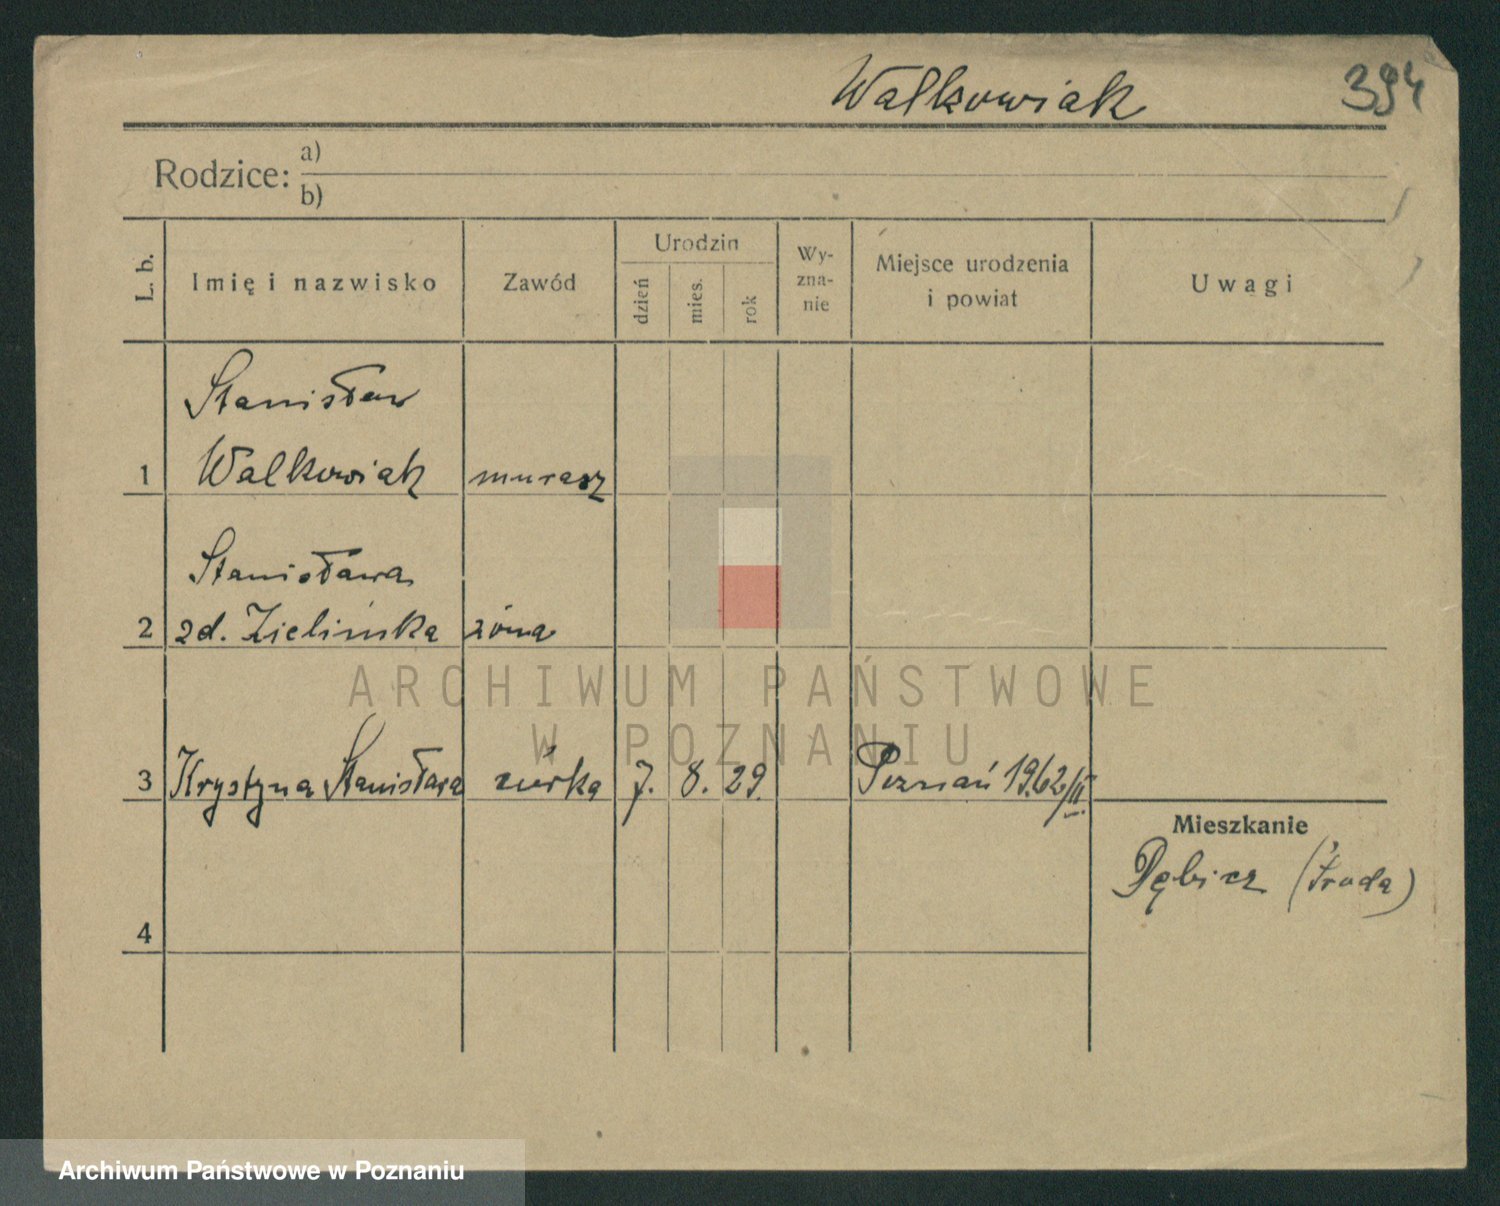 Walkowiak
394
Rodzice: a)
b)
L. b.
Imię i nazwisko
Zawód
Urodzin
dzień
mies.
rok
Wy-
zna-
nie
Miejsce urodzenia
i powiat
Uwagi
Stanisław
1 Walkowiak murarz
Stanisława
2 zd. Zielińska żona
ARCHIWUM PAŃSTWOWE
W POZNANIU
3 Krystyna Stanisława córka 7. 8. 29. Poznań 1962/III
Mieszkanie
Dębicz (Środa)
4
Archiwum Państwowe w Poznaniu